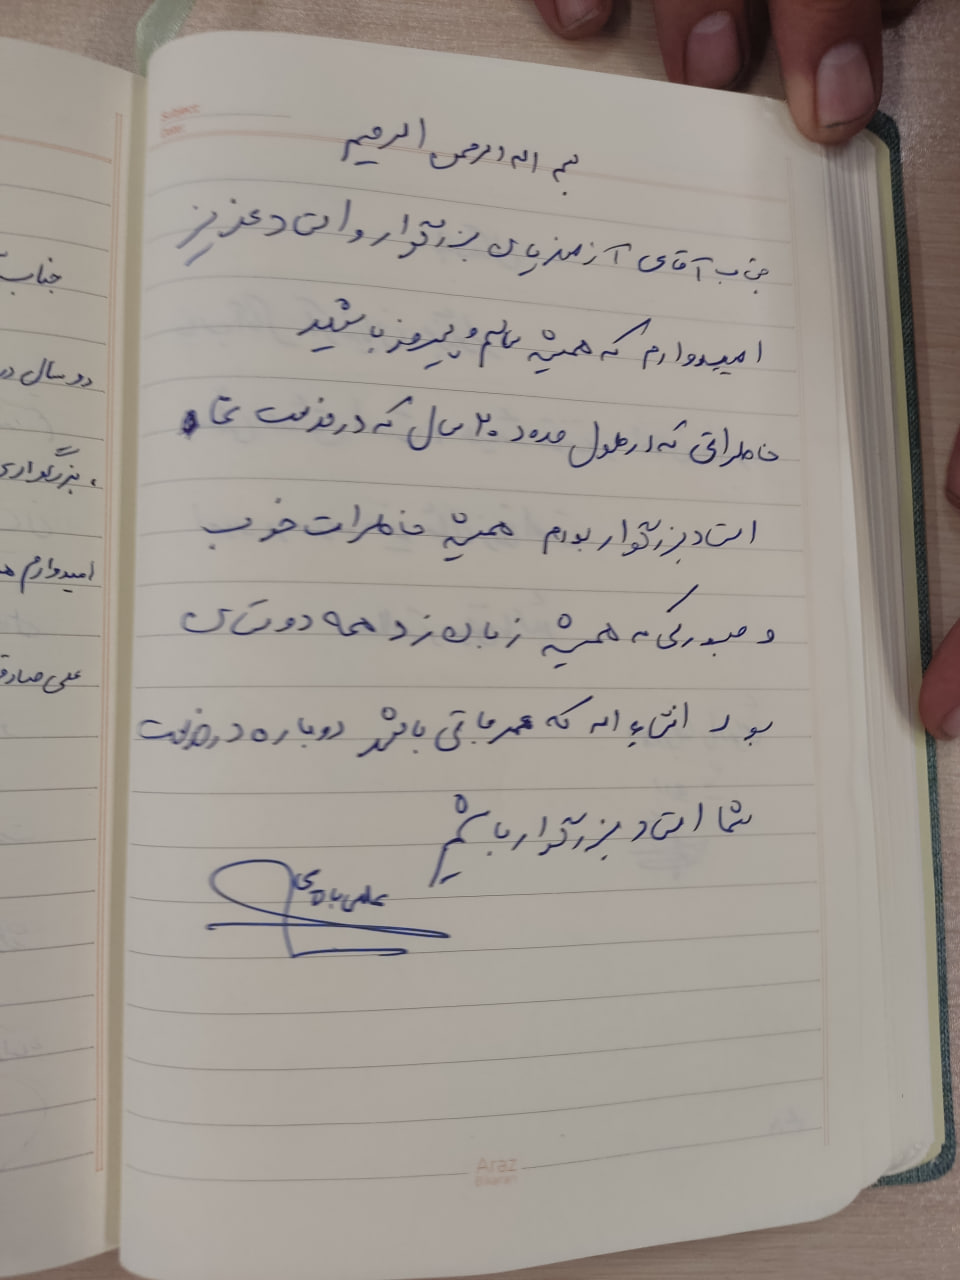 Subject:
Date:
بسم الله الرحمن الرحیم
جناب آقای بزرگوار و استاد عزیز
امیدوارم که همیشه سالم و پیروز باشید
خاطراتی که در طول حدود ۲۰ سال که در خدمت شما
استاد بزرگوار بودم همیشه خاطرات خوب
و که همیشه زبان زد همه دوستان
بود انشاء اله که عمر باقی باشد دوباره در خدمت
شما استاد بزرگوار باشم
علی
جناب
دو سال در
بزرگواری
امیدوارم
علی صادق
Araz